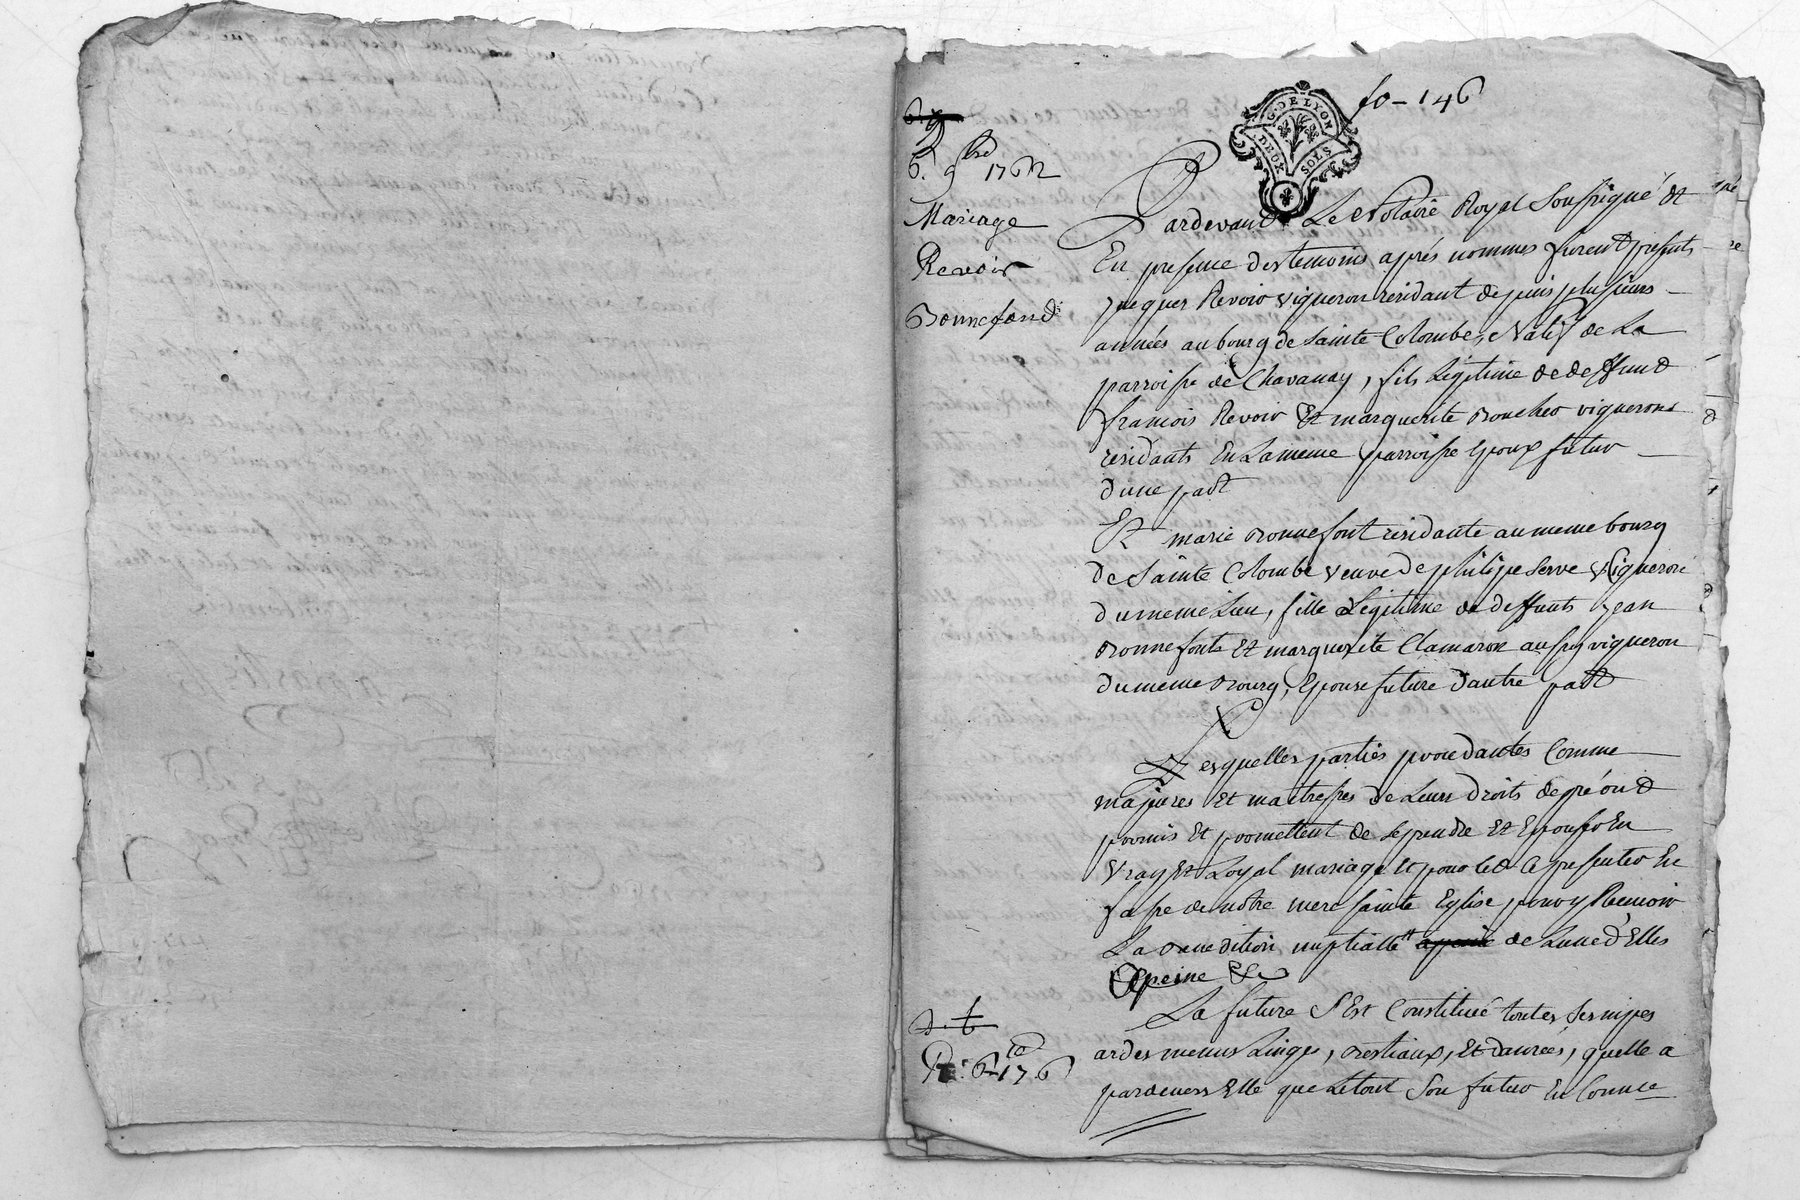 fo - 146
G. DE LYON
DEUX SOLS
6. 9bre 1762
Mariage
Revoir
Bonnefond
Pardevant Le Notaire Royal Soussigné et
En presence des temoins aprés nommes furent presents
jacques Revoir vigneron residant depuis plusieurs
années au bourg de Sainte Colombe, Natif de La
parroisse de Chavanay, fils Légitime de deffund
francois Revoir Et marguerite Boucher vignerons
residants En La meme parroisse Epoux futur
dune part
Et marie Bonnefont residante au meme bourg
de Sainte Colombe veuve de philippe Serve Vigneron
du meme Lieu, fille Légitime de deffunts jean
Bonnefonts Et marguerite Clamaron aussy vigneron
du meme Bourg, Epouse future d'autre part
Lesquelles parties procedantes Comme
majeures Et maitresses de Leurs droits de gré ond
promis Et promettent de Se prendre Et Epouser En
vray Et Loyal mariage Et pour Ced Se presenter En
fasse de notre mere sainte Eglise pour y Recevoir
La Benedition nuptialle de Lune d'Elles
apeine &c
La future S'Est Constituée toutes Ses nipes
ardes menus Linges, Bestiaux, Et danrées, quelle a
pardevers Elle que Letout Son futur En Conn